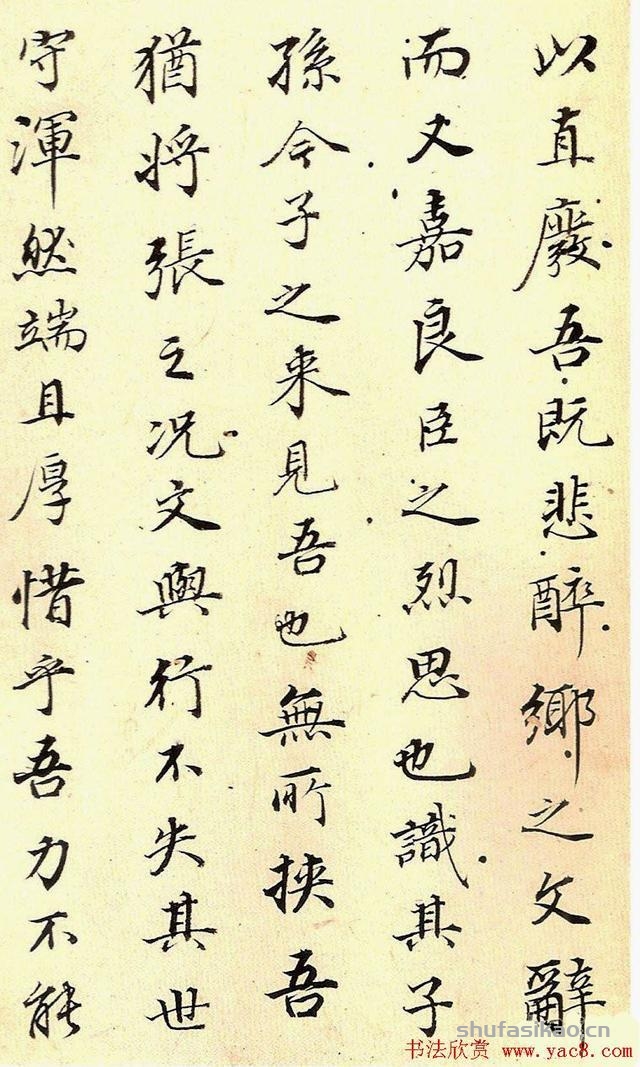 以直廢吾既悲醉鄉之文辭
而又嘉良臣之烈思也識其子
孫今子之来見吾也無所挾吾
猶将張之况文與行不失其世
守渾然端且厚惜乎吾力不能
shufasikao.cn
书法欣赏 www.yac8.com